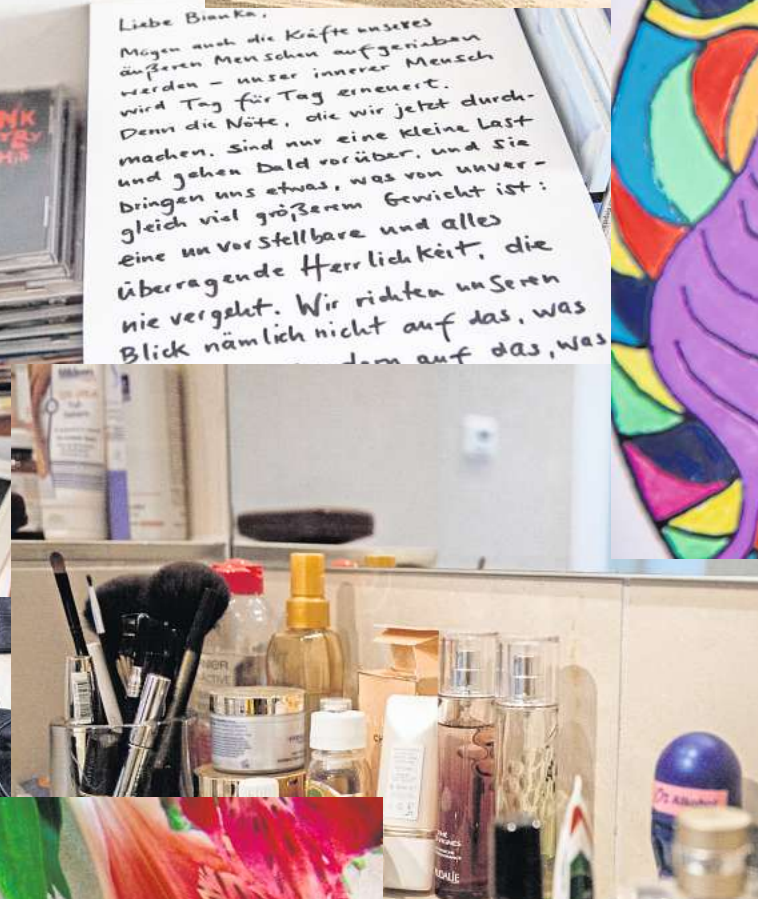 Liebe Bianka,
Mögen auch die Kräfte unseres
äußeren Menschen aufgerieben
werden – unser innerer Mensch
wird Tag für Tag erneuert.
Denn die Nöte, die wir jetzt durch-
machen, sind nur eine kleine Last
und gehen bald vorüber, und sie
bringen uns etwas, was von unver-
gleich viel größerem Gewicht ist:
eine unvorstellbare und alles
überragende Herrlichkeit, die
nie vergeht. Wir richten unseren
Blick nämlich nicht auf das, was
auf das, was
NK
0% Alkohol